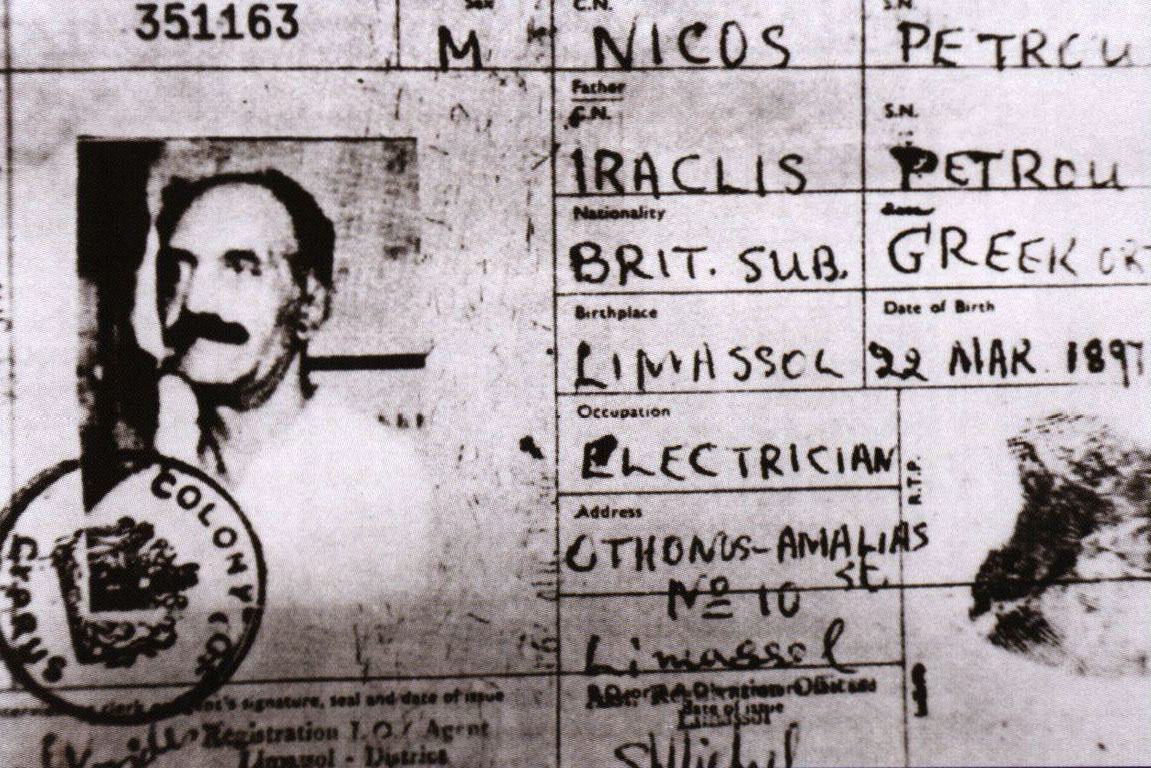 351163
Sex
M
C.N.
NICOS
S.N.
PETROU
Father
C.N.
IRACLIS
S.N.
PETROU
Nationality
BRIT. SUB.
Race
GREEK OR
Birthplace
LIMASSOL
Date of Birth
22 MAR 1897
Occupation
ELECTRICIAN
R.T.P.
Address
OTHONOS-AMALIAS
St.
No 10
Limassol
COLONY OF
CYPRUS
signature, seal and date of issue
Registration Agent
Limassol - District
date of issue
Limassol